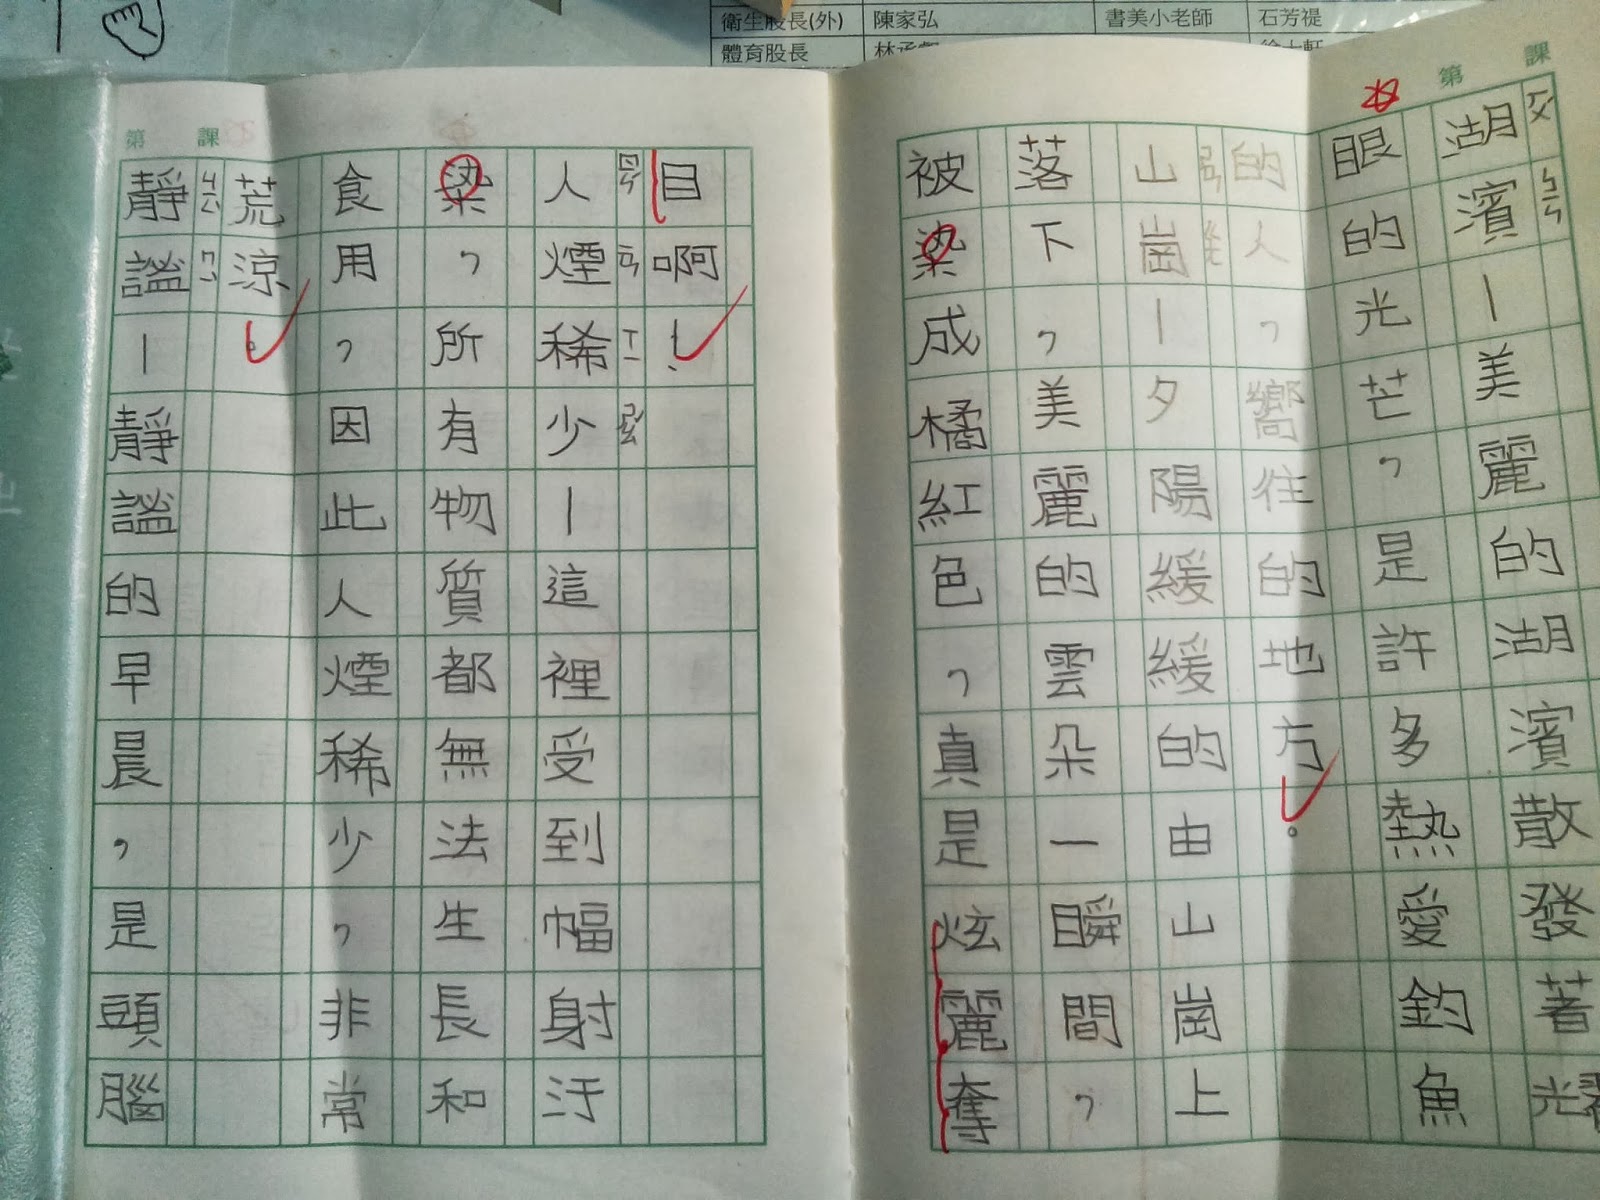 衛生股長(外) 陳家弘 書美小老師 石芳禔
體育股長
第 課
湖濱—美麗的湖濱散發著光
ㄅㄧㄣ
眼的光芒,是許多熱愛釣魚
的人,嚮往的地方。
山崗—夕陽緩緩的由山崗上
落下,美麗的雲朵一瞬間,
被染成橘紅色,真是炫麗奪
目啊!
人煙稀少—這裡受到幅射汙
ㄖㄣˊ ㄧㄢ ㄒㄧ ㄕㄠˇ
染,所有物質都無法生長和
食用,因此人煙稀少,非常
荒涼。
第 課
靜謐—靜謐的早晨,是頭腦
ㄐㄧㄥˋ ㄇㄧˋ